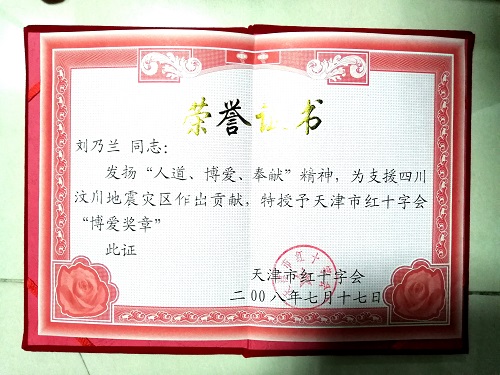 荣誉证书
刘乃兰 同志：
发扬“人道、博爱、奉献”精神，为支援四川
汶川地震灾区作出贡献，特授予天津市红十字会
“博爱奖章”
此证
天津市红十字会
二00八年七月十七日